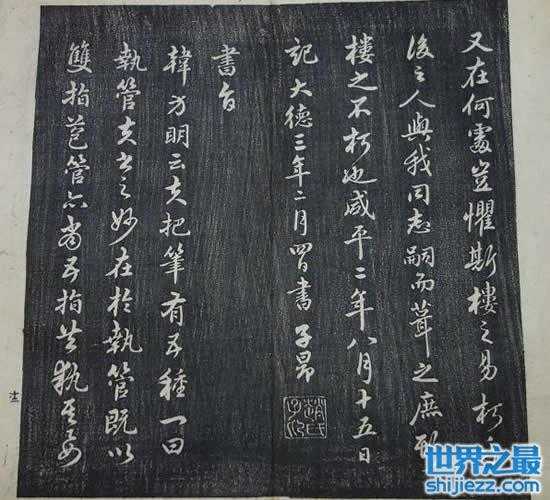 又在何處豈懼斯樓之易朽乎
後之人與我同志嗣而葺之庶斯
樓之不朽也咸平二年八月十五日
記 大德三年二月四日書 子昂
趙氏子昂
書旨
韓方明云夫把筆有五種一曰
執管夫書之妙在於執管既以
雙指苞管亦當五指共執其要
世界之最
shijiezz.com